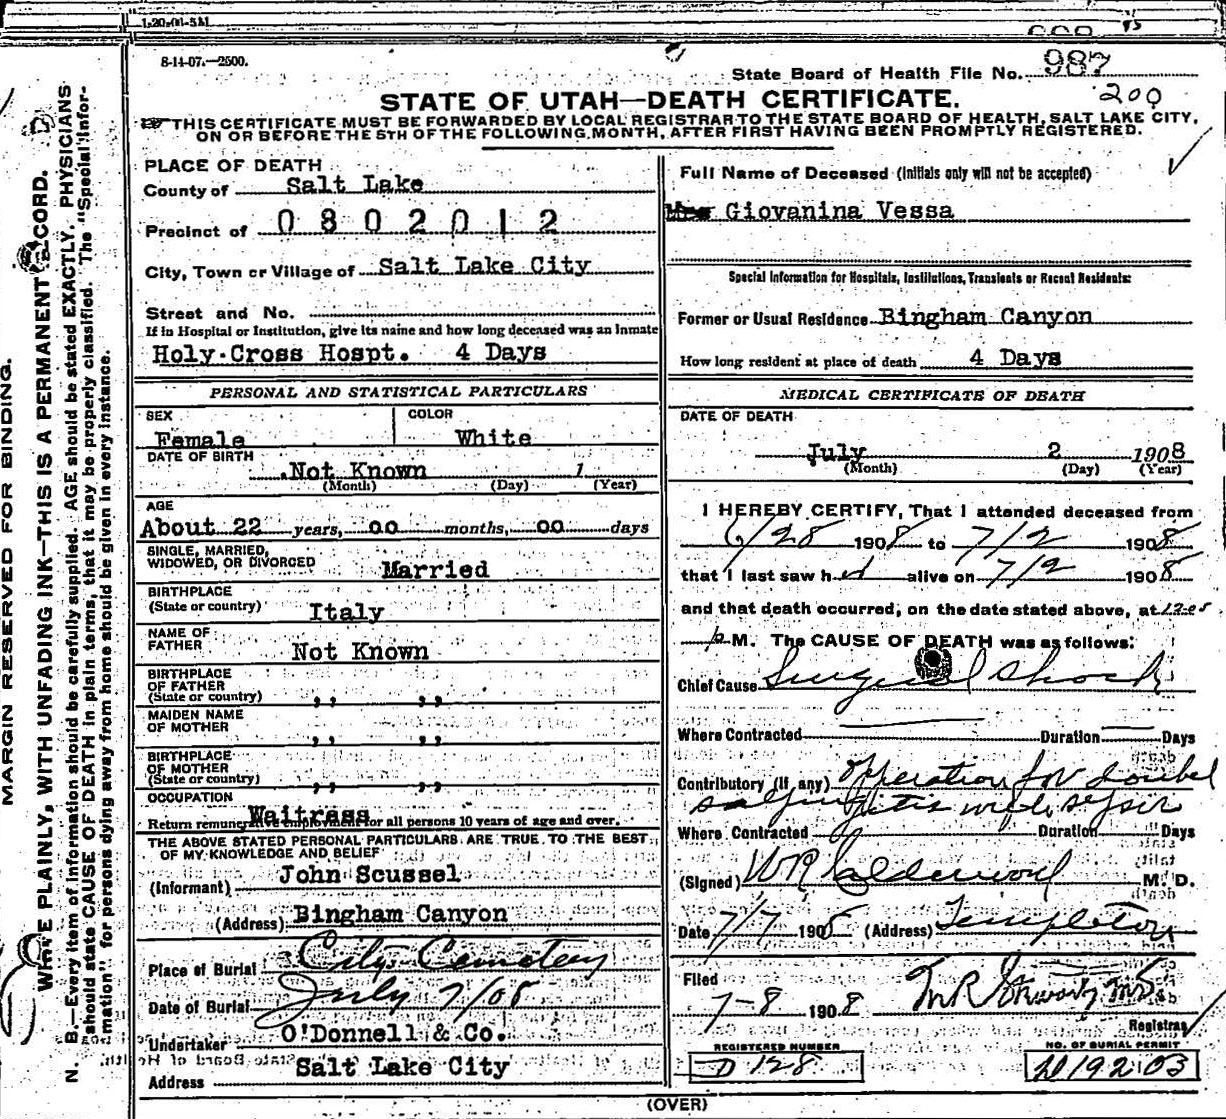 1-20-08-5M
8-14-07.—2500.
State Board of Health File No. 987
200
STATE OF UTAH—DEATH CERTIFICATE.
THIS CERTIFICATE MUST BE FORWARDED BY LOCAL REGISTRAR TO THE STATE BOARD OF HEALTH, SALT LAKE CITY,
ON OR BEFORE THE 5TH OF THE FOLLOWING MONTH, AFTER FIRST HAVING BEEN PROMPTLY REGISTERED.
PLACE OF DEATH
County of Salt Lake
Precinct of 0802012
City, Town or Village of Salt Lake City
Street and No.
If in Hospital or Institution, give its name and how long deceased was an Inmate
Holy Cross Hospt. 4 Days
PERSONAL AND STATISTICAL PARTICULARS
SEX Female COLOR White
DATE OF BIRTH Not Known 1
(Month) (Day) (Year)
AGE
About 22 years, 00 months, 00 days
SINGLE, MARRIED,
WIDOWED, OR DIVORCED Married
BIRTHPLACE
(State or country) Italy
NAME OF
FATHER Not Known
BIRTHPLACE
OF FATHER
(State or country) ,, ,,
MAIDEN NAME
OF MOTHER ,, ,,
BIRTHPLACE
OF MOTHER
(State or country) ,, ,,
OCCUPATION Waitress
Return remunerative employment for all persons 10 years of age and over.
THE ABOVE STATED PERSONAL PARTICULARS ARE TRUE TO THE BEST
OF MY KNOWLEDGE AND BELIEF
(Informant) John Scussel
(Address) Bingham Canyon
Place of Burial City Cemetery
Date of Burial July 7/08
Undertaker O'Donnell & Co.
Address Salt Lake City
Full Name of Deceased (Initials only will not be accepted)
Giovanina Vessa
Special Information for Hospitals, Institutions, Transients or Recent Residents:
Former or Usual Residence Bingham Canyon
How long resident at place of death 4 Days
MEDICAL CERTIFICATE OF DEATH
DATE OF DEATH
July 2 1908
(Month) (Day) (Year)
I HEREBY CERTIFY, That I attended deceased from
6/28 1908 to 7/2 1908
that I last saw her alive on 7/2 1908
and that death occurred, on the date stated above, at 12:05
p M. The CAUSE OF DEATH was as follows:
Chief Cause Surgical Shock
Where Contracted Duration Days
Contributory (if any) operation for doubel
salpingitis with
Where Contracted Duration Days
(Signed) WR Calderwood M. D.
Date 7/7 1908 (Address) Templeton
Filed
7-8 1908
Registrar
REGISTERED NUMBER
D 128
NO. OF BURIAL PERMIT
19203
(OVER)
MARGIN RESERVED FOR BINDING.
WRITE PLAINLY, WITH UNFADING INK—THIS IS A PERMANENT RECORD.
N. B.—Every item of information should be carefully supplied. AGE should be stated EXACTLY. PHYSICIANS
should state CAUSE OF DEATH in plain terms, that it may be properly classified. The "Special Infor-
mation" for persons dying away from home should be given in every instance.